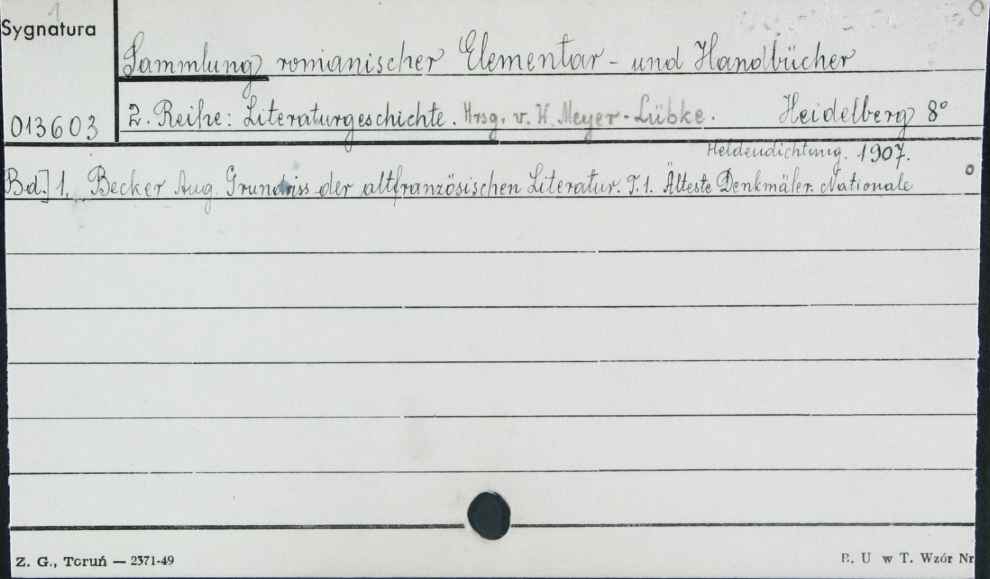 Sygnatura
Sammlung romanischer Elementar- und Handbücher
013603
2. Reihe: Literaturgeschichte. Hrsg. v. W. Meyer-Lübke. Heidelberg 8°
Heldendichtung. 1907.
Bd.] 1. Becker Aug. Grundriss der altfranzösischen Literatur. T. 1. Älteste Denkmäler. Nationale
Z. G., Toruń — 2371-49
B. U w T. Wzór Nr